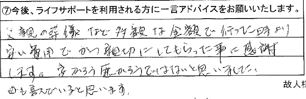 ⑦今後、ライフサポートを利用される方に一言アドバイスをお願いいたします。
親の葬儀など 多額な金額で行った時より
安い費用でかつ親切にしてもらった事に感謝
します。安かろう悪かろうではないと思いました。
も喜んでいると思います。
故人様